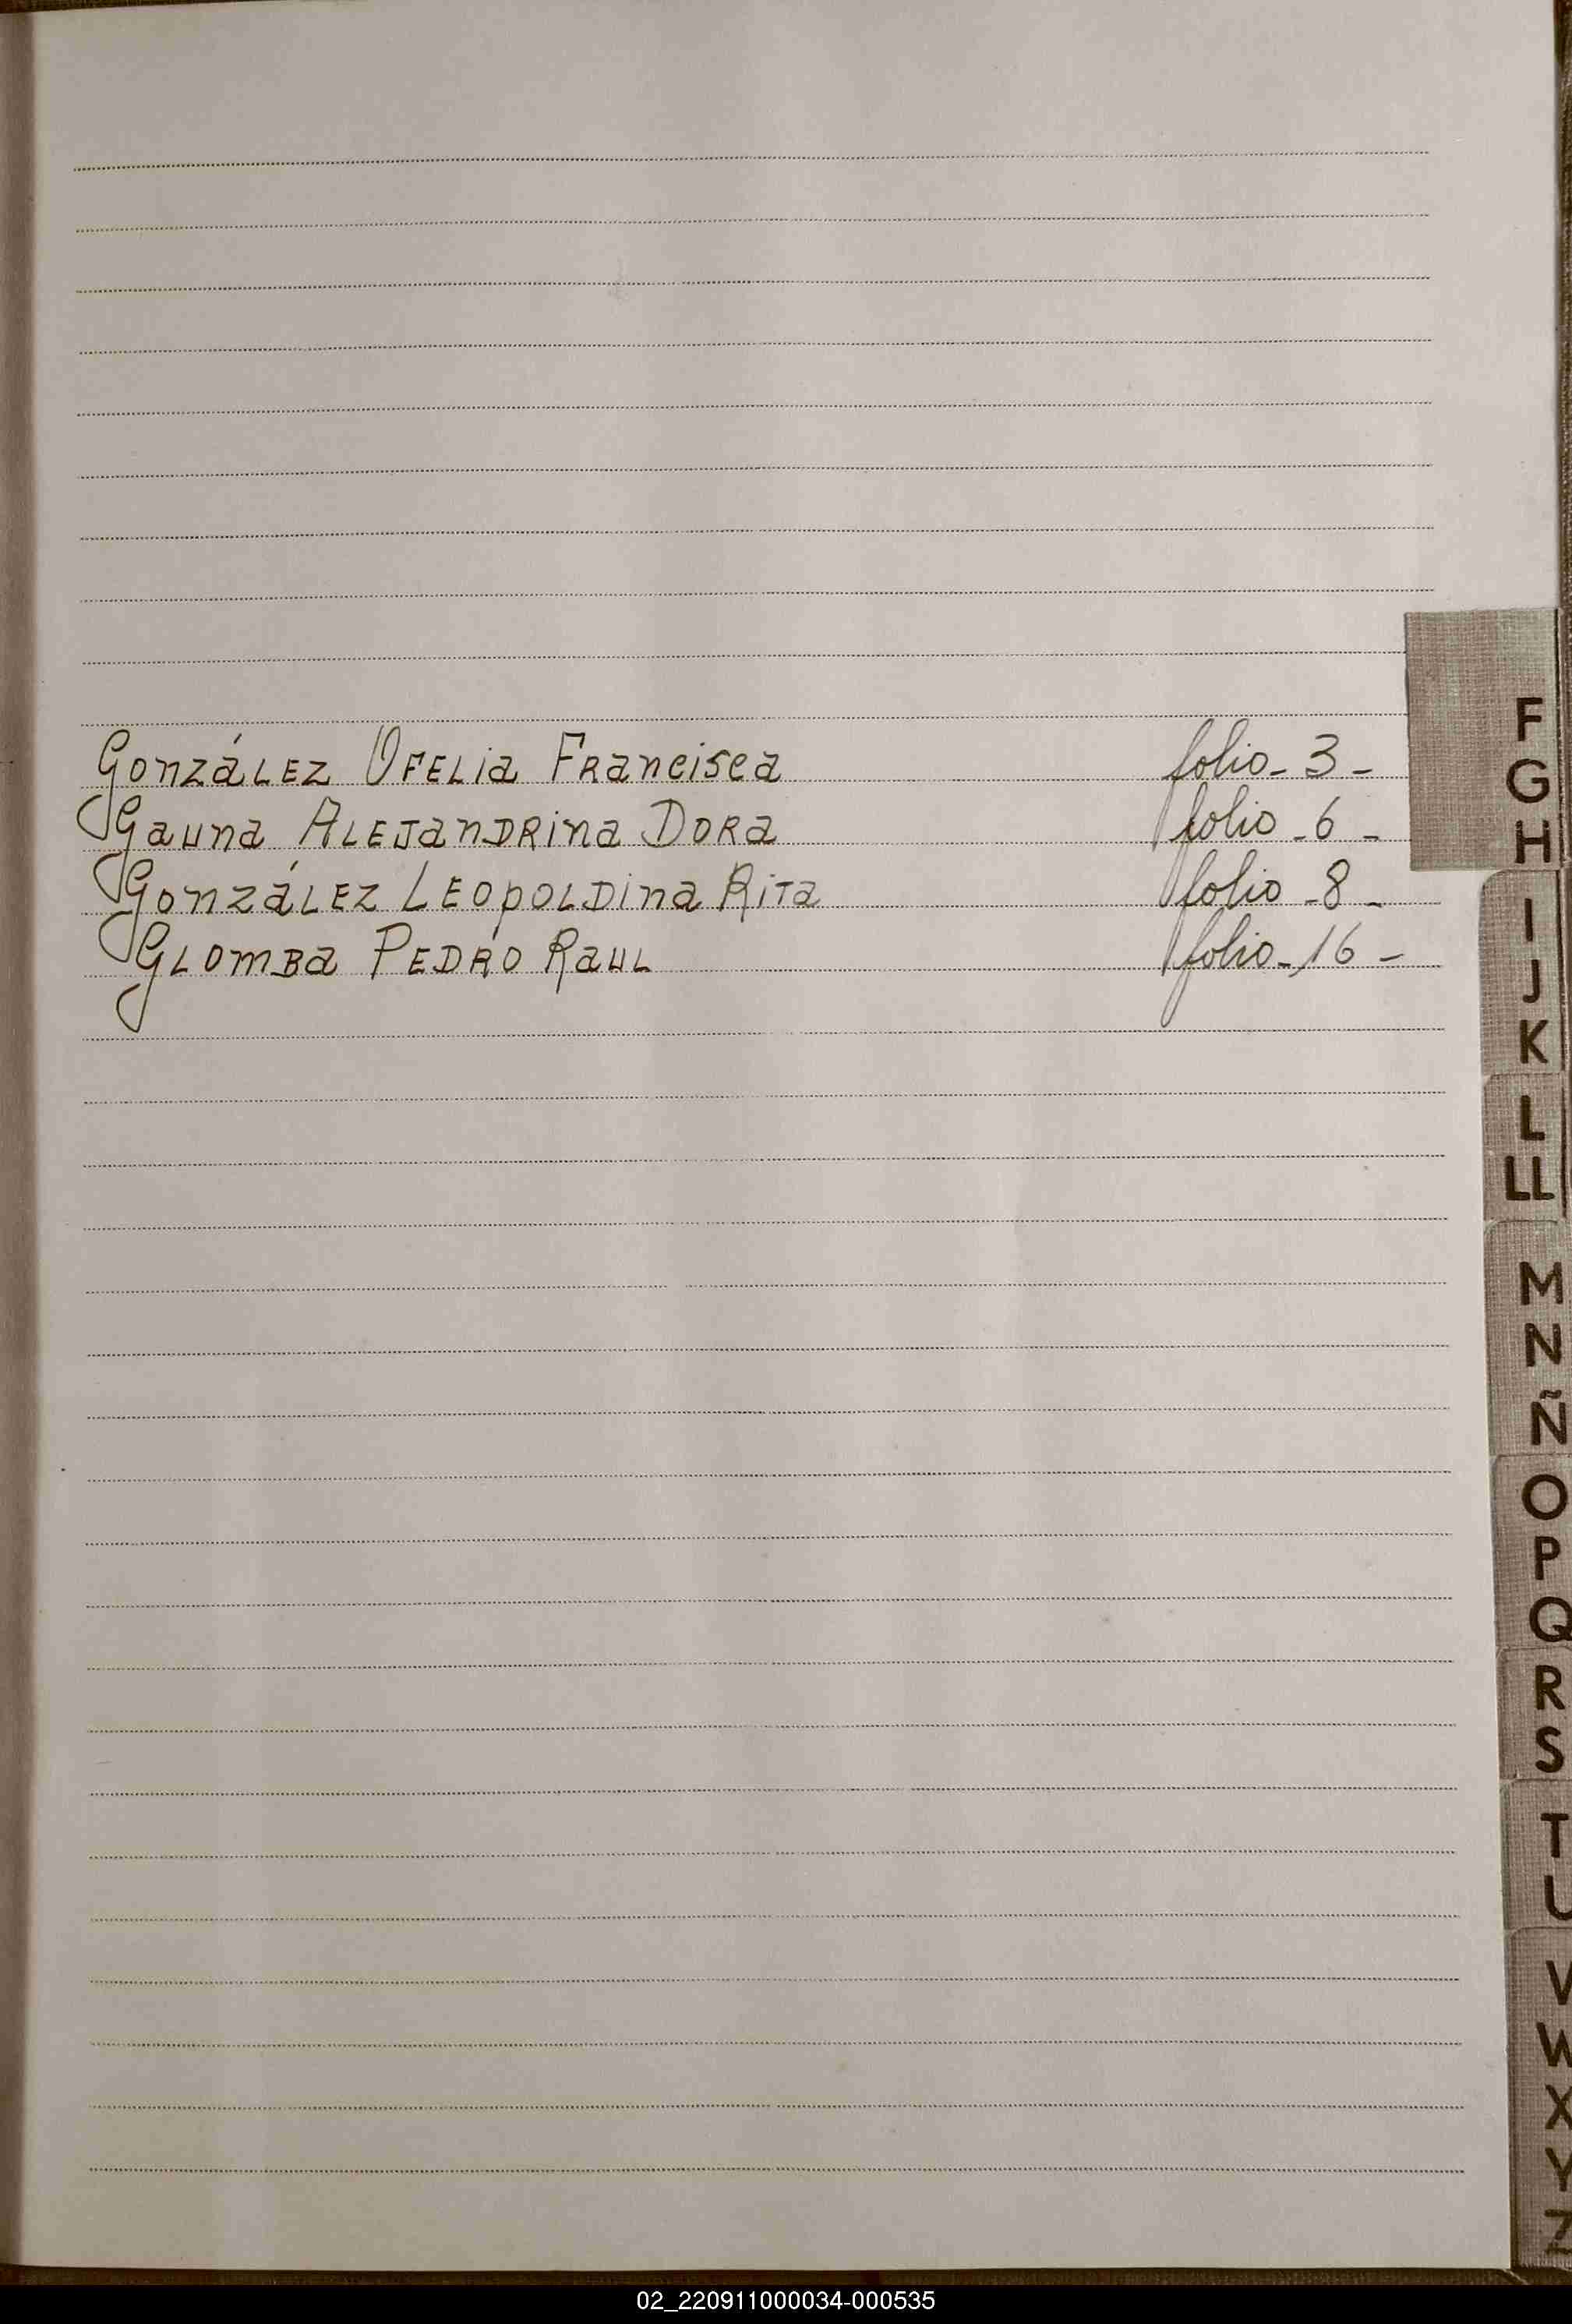 González Ofelia Francisca folio - 3 -
Gauna Alejandrina Dora folio - 6 -
González Leopoldina Rita folio - 8 -
Glomba Pedro Raul folio - 16 -
F
G
H
I
J
K
L
LL
M
N
Ñ
O
P
Q
R
S
T
U
V
W
X
Y
Z
02_220911000034-000535